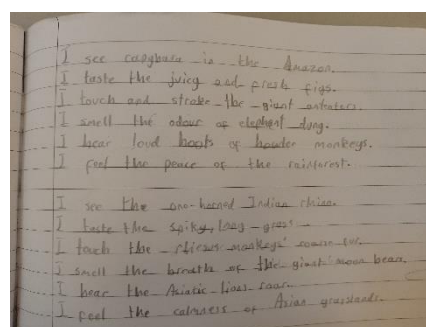 I see capybara in the Amazon.
I taste the juicy and fresh figs.
I touch and stroke the giant anteaters.
I smell the odour of elephant dung.
I hear loud hoots of howler monkeys.
I feel the peace of the rainforest.
I see the one-horned Indian rhino.
I taste the spiky, long grass.
I touch the rhesus monkeys' coarse fur.
I smell the breath of the giant moon bear.
I hear the Asiatic lions roar.
I feel the calmness of Asian grasslands.